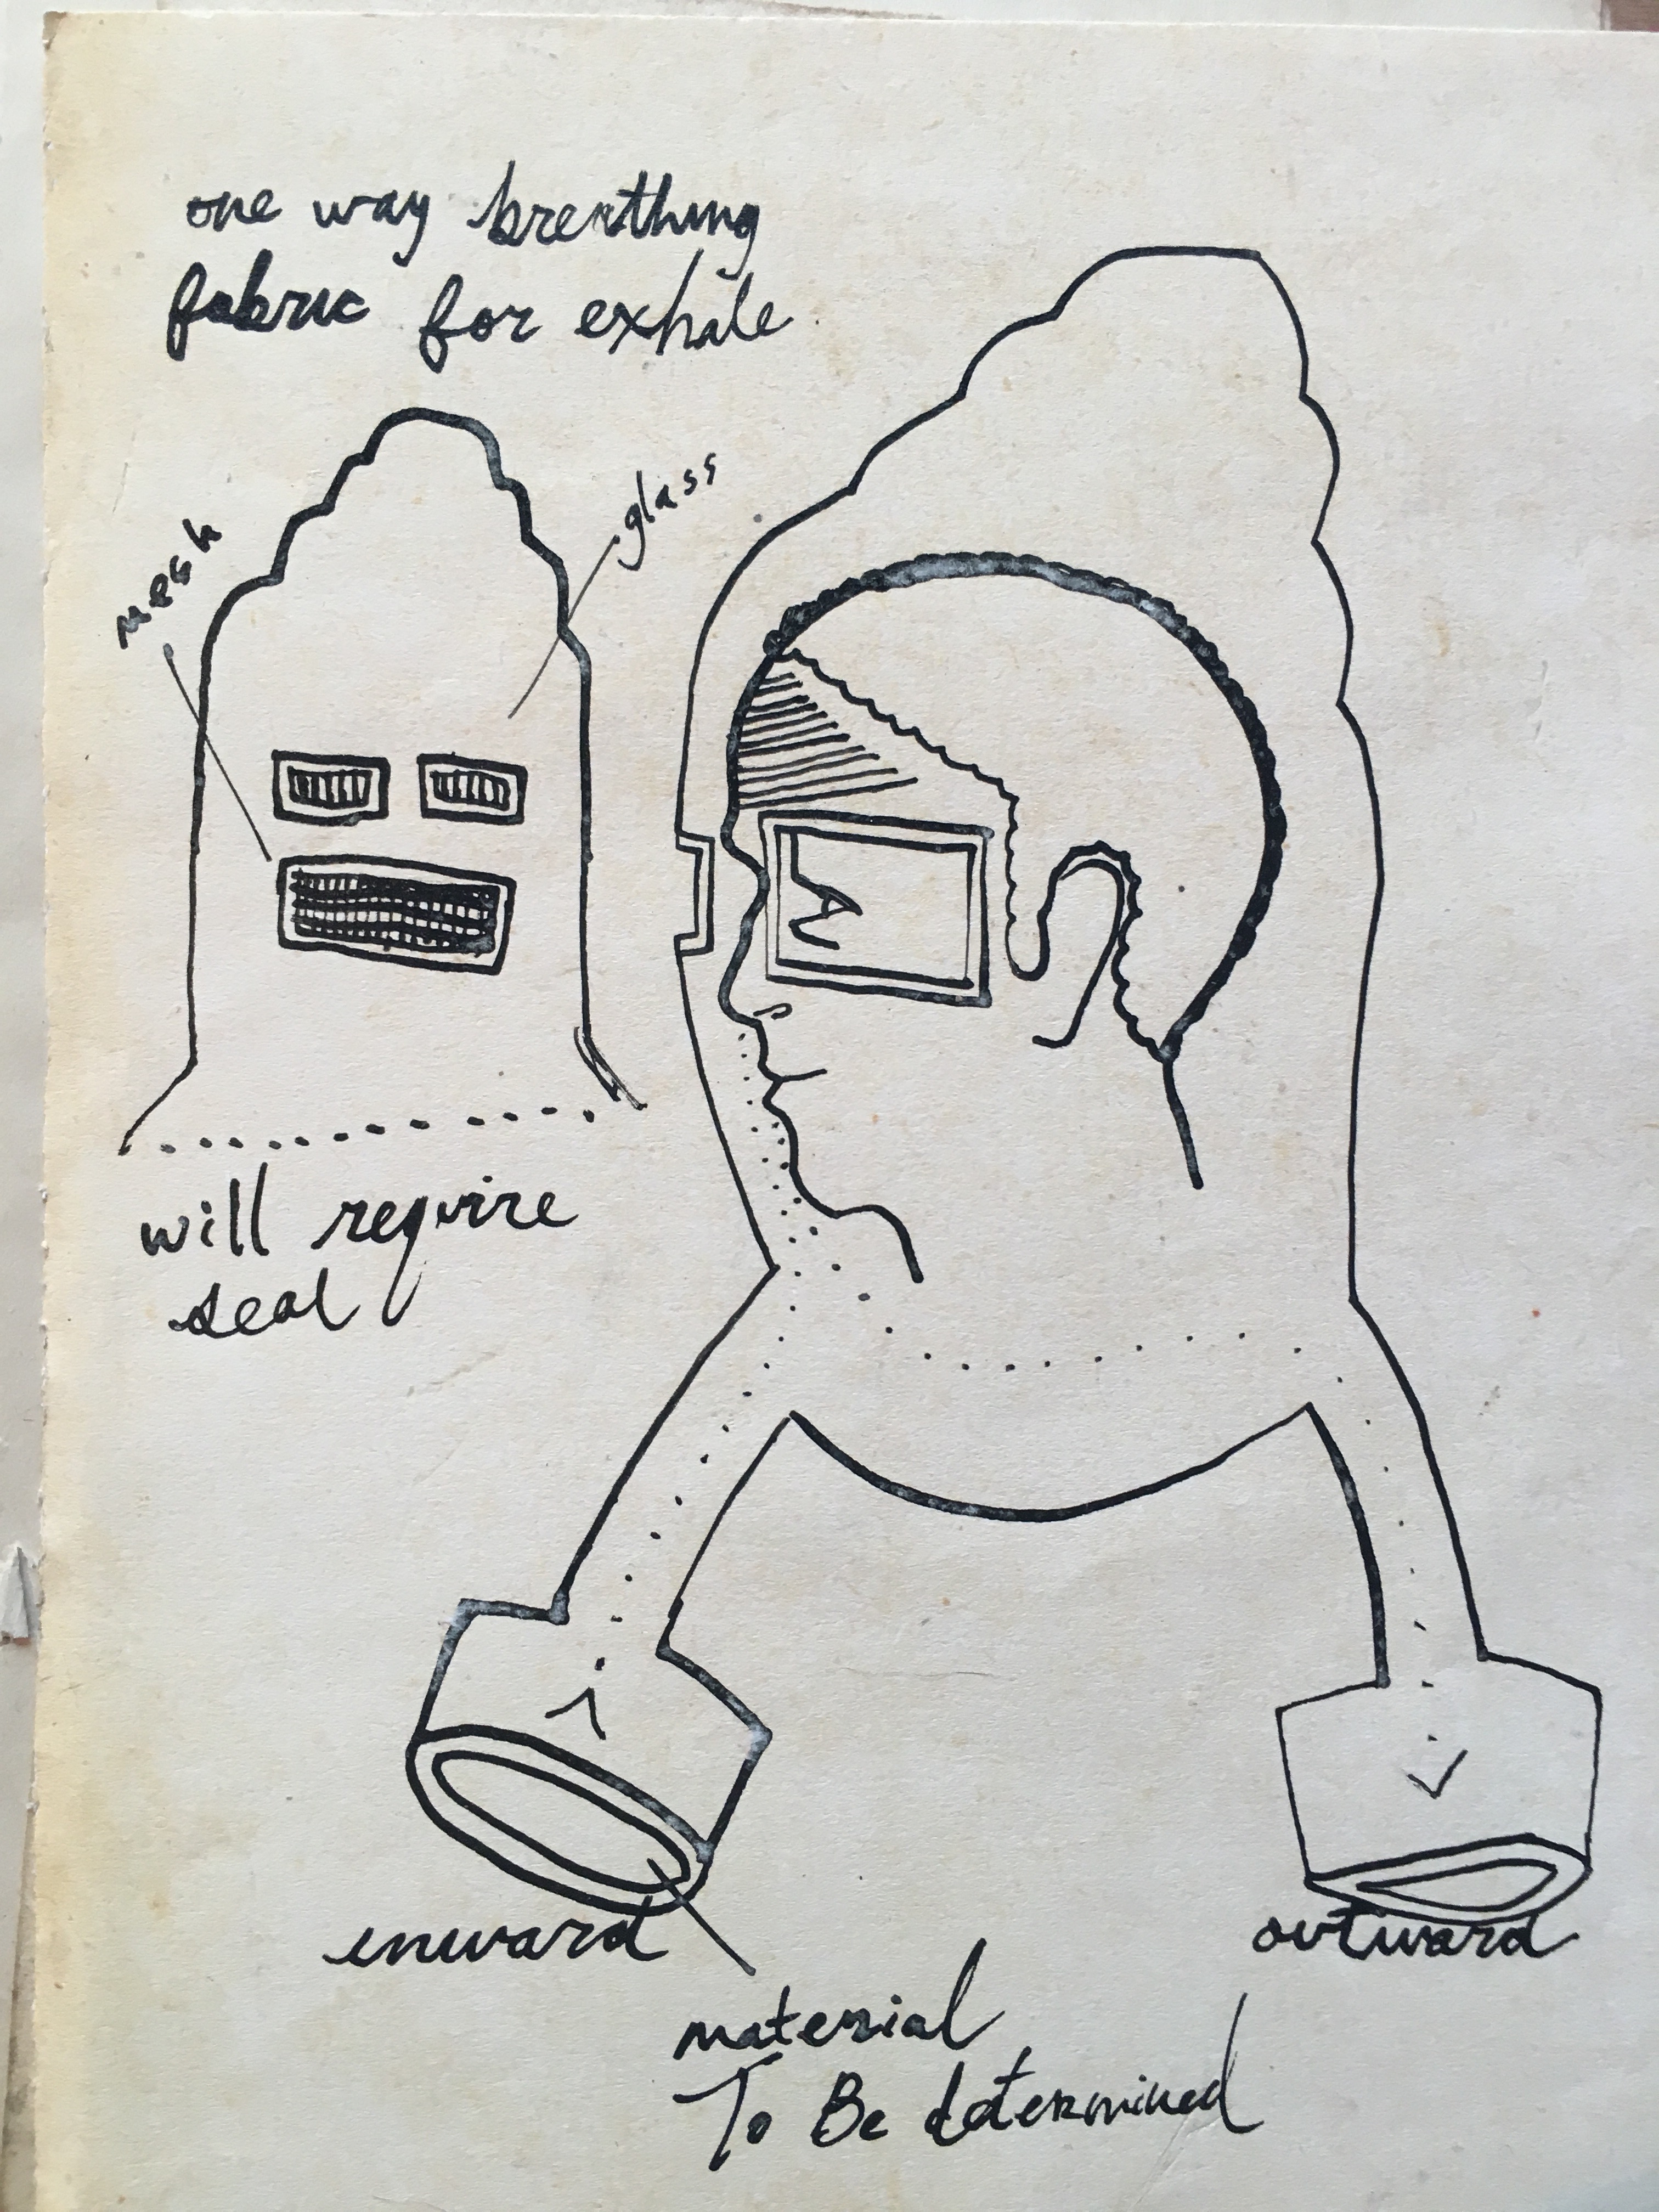 one way breathing
fabric for exhale
mesh
glass
will require
seal
inward
outward
material
To Be determined